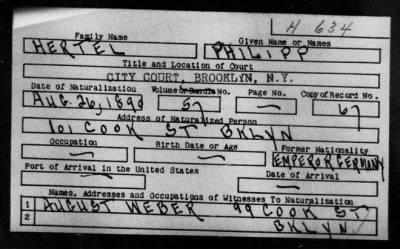 H 634
Family Name Given Name or Names
HERTEL PHILIPP
Title and Location of Court
CITY COURT, BROOKLYN, N.Y.
Date of Naturalization Volume or Bundle No. Page No. Copy of Record No.
AUG. 26, 1890 57 — 67
Address of Naturalized Person
101 COOK ST BKLYN
Occupation Birth Date or Age Former Nationality
— — EMPEROR GERMANY
Port of Arrival in the United States Date of Arrival
— —
Names, Addresses and Occupations of Witnesses To Naturalization
1 AUGUST WEBER 99 COOK ST
2 BKLYN